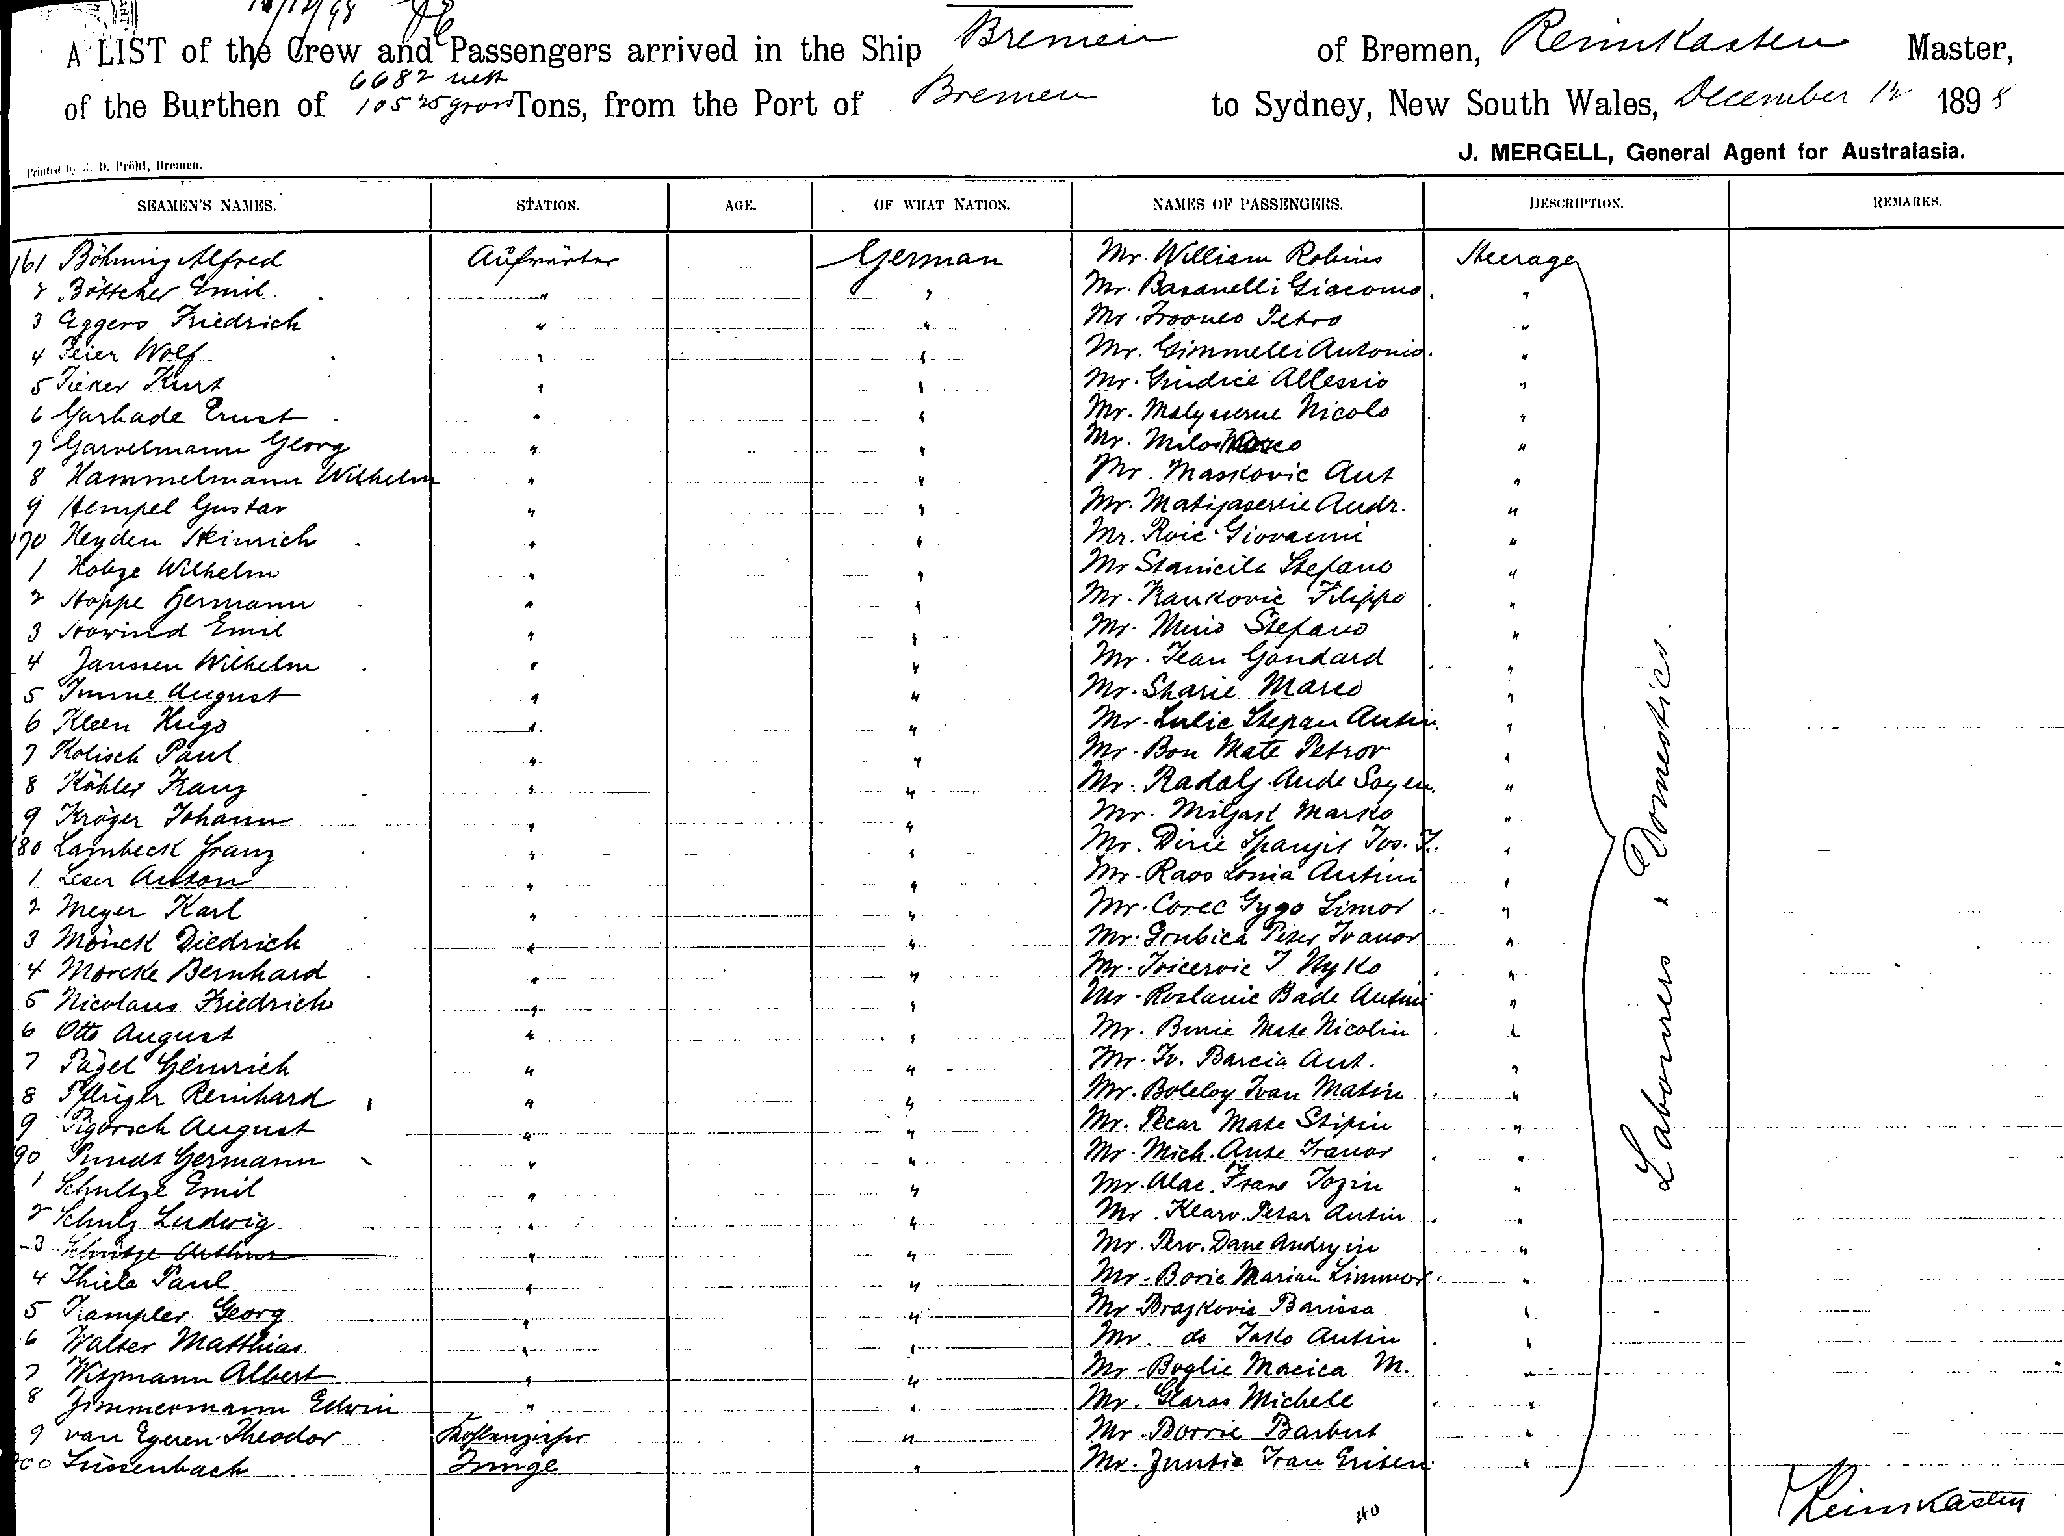 A LIST of the Crew and Passengers arrived in the Ship Bremen of Bremen, Reimkasten Master,
of the Burthen of 6682 nett 10525 gross Tons, from the Port of Bremen to Sydney, New South Wales, December 12 1898
J. MERGELL, General Agent for Australasia.
Printed by J. D. Pröhl, Bremen.
SEAMEN'S NAMES. STATION. AGE. OF WHAT NATION. NAMES OF PASSENGERS. DESCRIPTION. REMARKS.
161 Böhmig Alfred Aufwärter German Mr. William Robins Steerage
2 Böttcher Emil " " Mr. Basanelli Giacomo "
3 Eggers Friedrich " " Mr. Petro "
4 Feier Wolf " " Mr. Gimmelli Antonio "
5 Ficker Kurt " " Mr. Giudice Allessio "
6 Garbade Ernst " " Mr. Nicolo "
7 Garvelmann Georg " " Mr. "
8 Hammelmann Wilhelm " " Mr. Maskovic Ant "
9 Hempel Gustav " " Mr. Matijasevic Andr. "
170 Heyden Heinrich " " Mr. Roic Giovanni "
1 Wilhelm " " Mr Stanicila Stefano "
2 Hoppe Hermann " " Mr. Rankovic Filippo "
3 Howind Emil " " Mr. Stefano "
4 Janssen Wilhelm " " Mr. Jean Gondard "
5 Imme August " " Mr. Sharie Marco "
6 Kleen Hugo " " Mr. Lulic Stepan Antin "
7 Kolisch Paul " " Mr. Bon Mate Petrov "
8 Köhler Franz " " Mr. Radalj Ande "
9 Kröger Johann " " Mr. Miljast Marko "
180 Lambeck Franz " " Mr. Dirie Spanjit Jos. "
1 Leser Anton " " Mr. Raos Antini "
2 Meyer Karl " " Mr. Corec Gygo Simor "
3 Mönck Diedrich " " Mr. Grubica Peter Ivanov "
4 Morcke Bernhard " " Mr. Ivicevic I Nyko "
5 Nicolaus Friedrich " " Mr. Roslanic Bade Antini "
6 Otto August " " Mr. Bunie Mate Nicolin "
7 Pagel Heinrich " " Mr. Iv. Barcia Ant. "
8 Pflüger Reinhard " " Mr. Boleloy Ivan Matin "
9 Pigorsch August " " Mr. Pecar Mate Stipin "
90 Pundt Hermann " " Mr. Mich. Ante Ivanov "
1 Schultze Emil " " Mr. Alac. Frane Jozin "
2 Schulz Ludwig " " Mr. Klarv. Petar Antin "
3 Schulze Arthur " " Mr. Perv. Dane Andryin "
4 Thiele Paul " " Mr. Boric Marian "
5 Georg " " Mr Brajkovic Barissa "
6 Walter Matthias " " Mr. do Jako Antin "
7 Wismann Albert " " Mr. Boglic Macica M. "
8 Zimmermann Edwin " " Mr. Glaras Michele "
9 van Egeren Theodor " Mr. Borric Barbert "
200 Süssenbach Junge " Mr. Juntic Ivan "
Labourers & Domestics.
40
Reimkasten